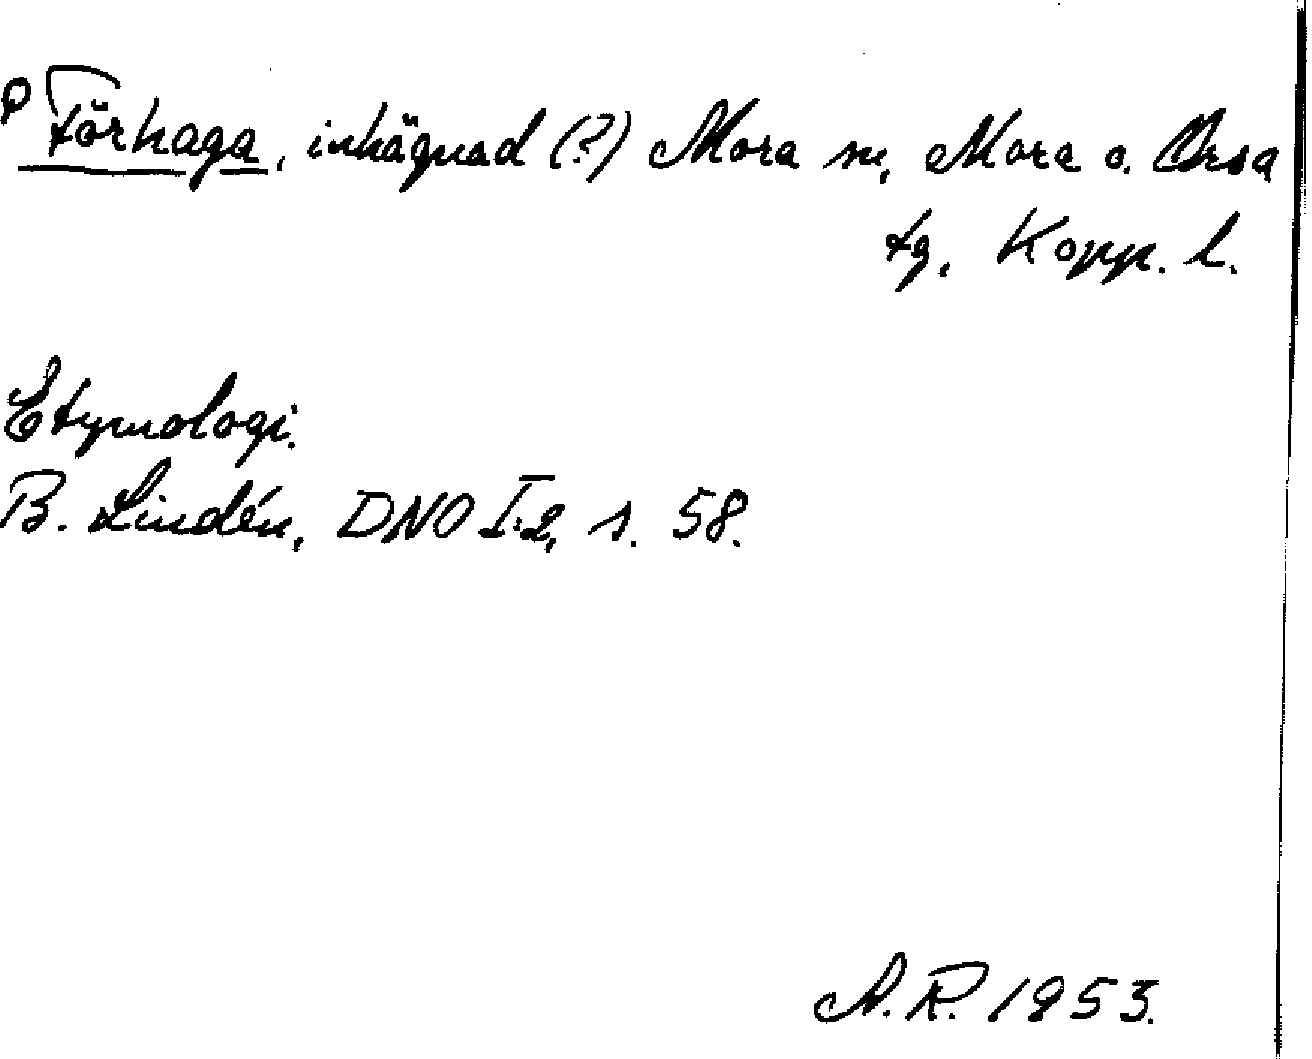 P Förhaga, inhägnad (?) Mora sn, Mora o. Orsa
tg, Kopp. l.
Etymologi.
B. Lindén, DNO I:2, s. 58.
A.R. 1953.